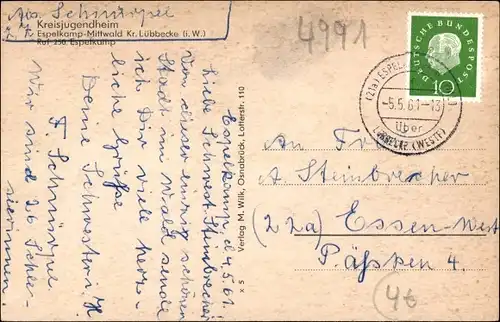 Abs. Schnürpel
z. Zt. Kreisjugendheim
Espelkamp-Mittwald Kr. Lübbecke (i. W.)
Ruf 256 Espelkamp
4991
DEUTSCHE BUNDESPOST
10
(21a) ESPELKAMP
-5.5.61-13
über
LÜBBECKE (WESTF)
Espelkamp, d. 4.5.61.
Liebe Schwest. Steinbrecher
Von dieser einzig schönen
Stadt im Wald sende
ich Dir viele herz-
liche Grüße
Deine Schwester i. H.
F. Schnürpel
Wir sind 26 Schle-
sierinnen.
Verlag M. Wilk, Osnabrück, Lotterstr. 110
x 5
An Fr.
A. Steinbrecher
(22a) Essen-West
P.äßken 4.
4€